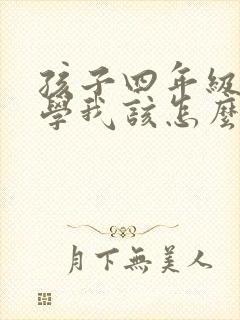 孩子四年級
學我該怎麼
月下無美人